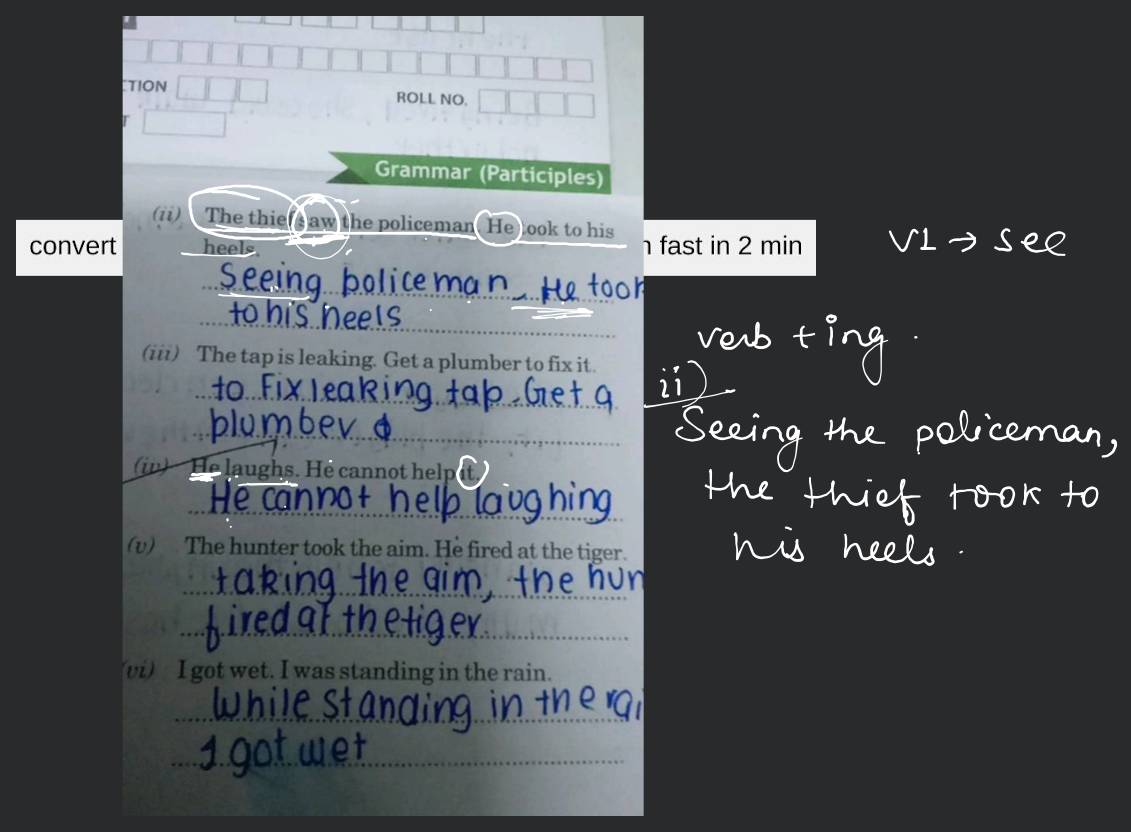 CTION
ROLL NO.
T
Grammar (Participles)
(ii) The thief saw the policeman. He took to his
heels.
convert
n fast in 2 min
V1 → see
Seeing policeman, He took
to his heels
verb + ing.
(iii) The tap is leaking. Get a plumber to fix it.
to Fix leaking tap. Get a
plumber
(iv) He laughs. He cannot help it.
He cannot help laughing
ii)
Seeing the policeman,
the thief took to
his heels.
(v) The hunter took the aim. He fired at the tiger.
taking the aim, the hun
fired at the tiger.
(vi) I got wet. I was standing in the rain.
While standing in the rai
I got wet